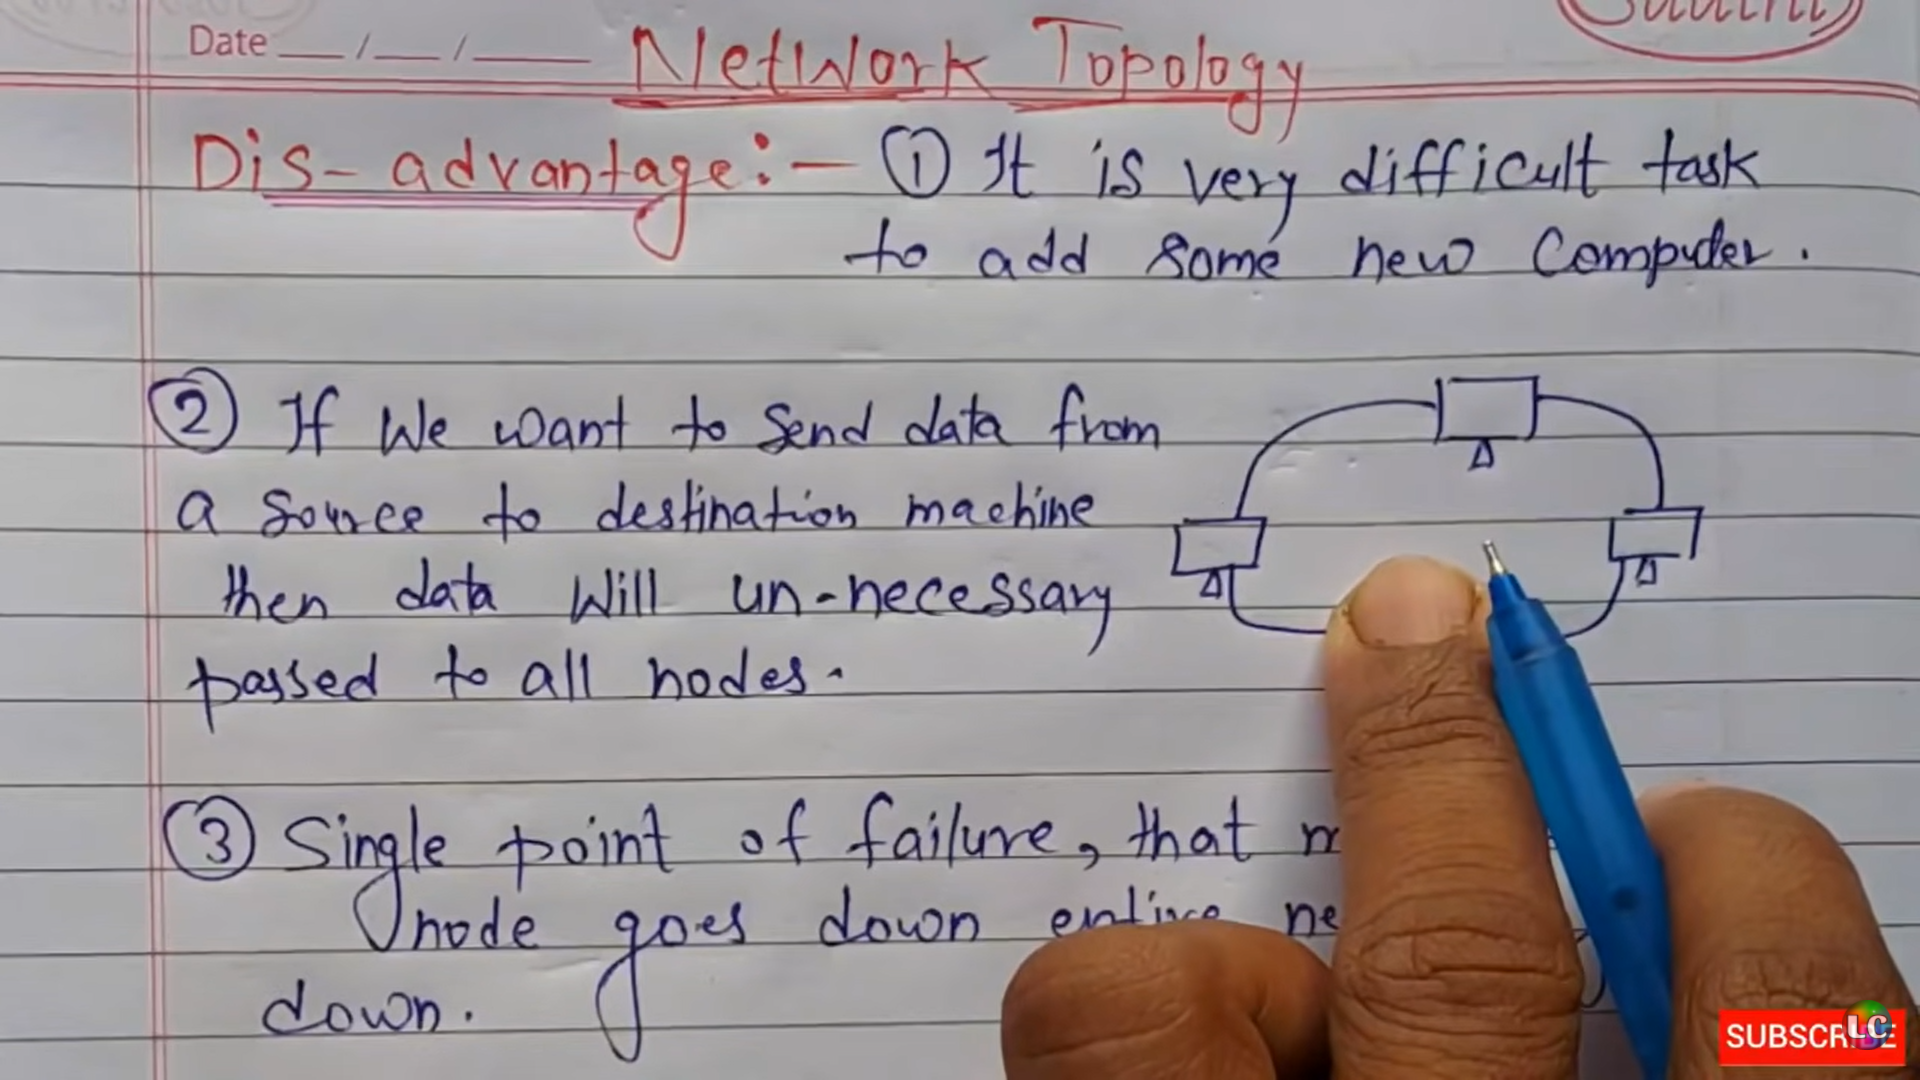 Date __/__/____
Network Topology
Dis-advantage:- ① It is very difficult task
to add some new Computer.
② If We want to Send data from
a source to destination machine
then data Will un-necessary
passed to all nodes.
③ Single point of failure, that
node goes down entire
down.
SUBSCRIBE
LC